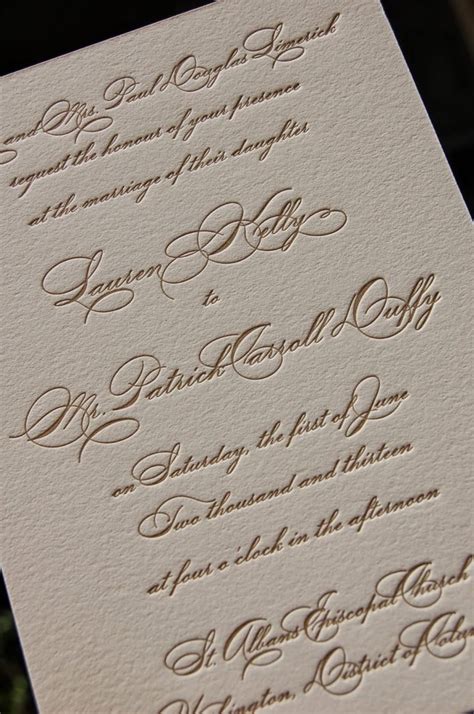 and Mrs. Paul Douglas Limerick
request the honour of your presence
at the marriage of their daughter
Lauren Kelly
to
Mr. Patrick Carroll Duffy
on Saturday, the first of June
Two thousand and thirteen
at four o'clock in the afternoon
St. Albans Episcopal Church
District of